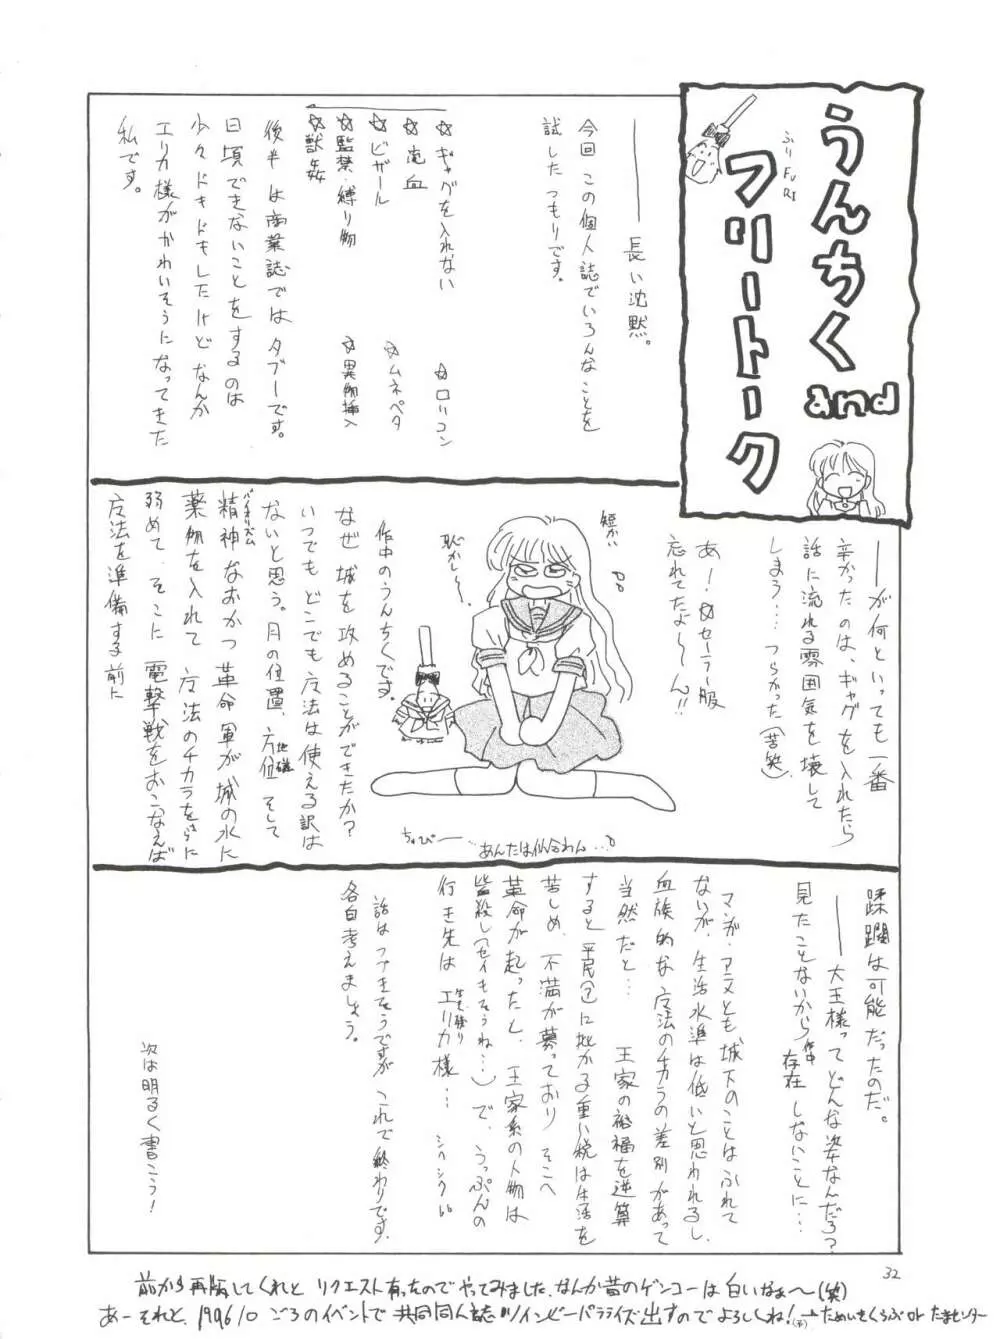 うんちく
and
ふりFURI
フリートーク
――――長い沈黙。
今回この個人誌でいろんなことを
試したつもりです。
☆ギャグを入れない ☆ロリコン
☆流血 ☆ムネペタ
☆ビザール
☆監禁・縛り物 ☆異物挿入
☆獣姦
後半は商業誌ではタブーです。
日頃できないことをするのは
少々ドキドキもしたけどなんか
エリカ様がかわいそうになってきた
私です。
――が何といっても一番
辛かったのは、ギャグを入れたら
話に流れる雰囲気を壊して
しまう・・・つらかった(苦笑)
あ!☆セーラー服
忘れてたよ〜〜ん!!
短かい
恥かし〜〜、
ちゅぴ――
あんたは似合わん・・・
作中のうんちくです。
なぜ城を攻めることができたか?
いつでもどこでも魔法は使える訳は
ないと思う。月の位置、方位 地磁 そして
精神 バイオリズム なおかつ革命軍が城の水に
薬物を入れて魔法のチカラをさらに
弱めて、そこに電撃戦をおこなえば
魔法を準備する前に
蹂躙は可能だったのだ。
――大王様ってどんな姿なんだろ?
見たことないから作中存在しないことに・・・
マンガ・アニメとも城下のことはふれて
ないが、生活水準は低いと思われるし、
血族的な魔法のチカラの差別があって
当然だと・・・ 王家の裕福を逆算
すると平民(?)に掛かる重い税は生活を
苦しめ、不満が募っており そこへ
革命が起ったと、王家系の人物は
皆殺し(セイもそうね・・・)で、うっぷんの
行き先は 生き残り エリカ様・・・ シクシク
話はつづきそうですが これで終わりです。
各自考えましょう。
次は明るく書こう!
32
前から再販してくれと リクエスト有ったのでやってみました、なんか昔のゲンコーは白いなぁ〜(笑)
あーそれと、1996/10 ごろのイベントで 共同同人誌 ツインビーパラダイズ出すのでよろしくね!